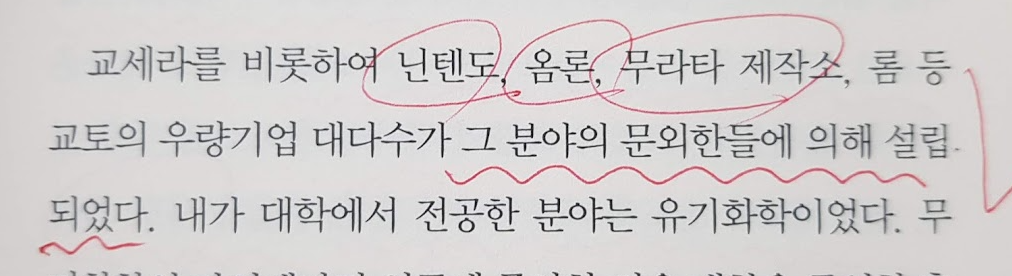 교세라를 비롯하여 닌텐도, 옴론, 무라타 제작소, 롬 등
교토의 우량기업 대다수가 그 분야의 문외한들에 의해 설립
되었다. 내가 대학에서 전공한 분야는 유기화학이었다. 무